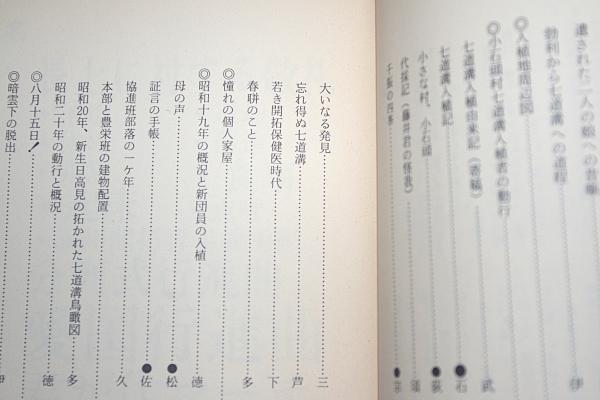 遺された二人の娘への言葉……伊
勃利から七道溝への道程
◎入植地周辺図
◎小石頭村七道溝入植者の動行……武
七道溝入植由来記（寄稿）……●石
七道溝入植記……●荻
小さな村、小石頭……須
代採記（藤井君の怪我）
千振の四季……●宗
大いなる発見……三
忘れ得ぬ七道溝……芦
若き開拓保健医時代……下
春聯のこと……多
◎憧れの個人家屋
◎昭和十九年の概況と新団員の入植……徳
母の声……●松
証言の手帳……●佐
協進班部落の一ケ年……久
本部と豊栄班の建物配置
昭和20年、新生日高見の拓かれた七道溝鳥瞰図……多
昭和二十年の動行と概況……徳
◎八月十五日！
◎暗雲下の脱出……伊